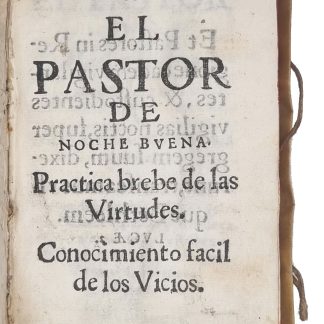 EL
PASTOR
DE
NOCHE BVENA.
Practica brebe de las
Virtudes.
Conocimiento facil
de los Vicios.